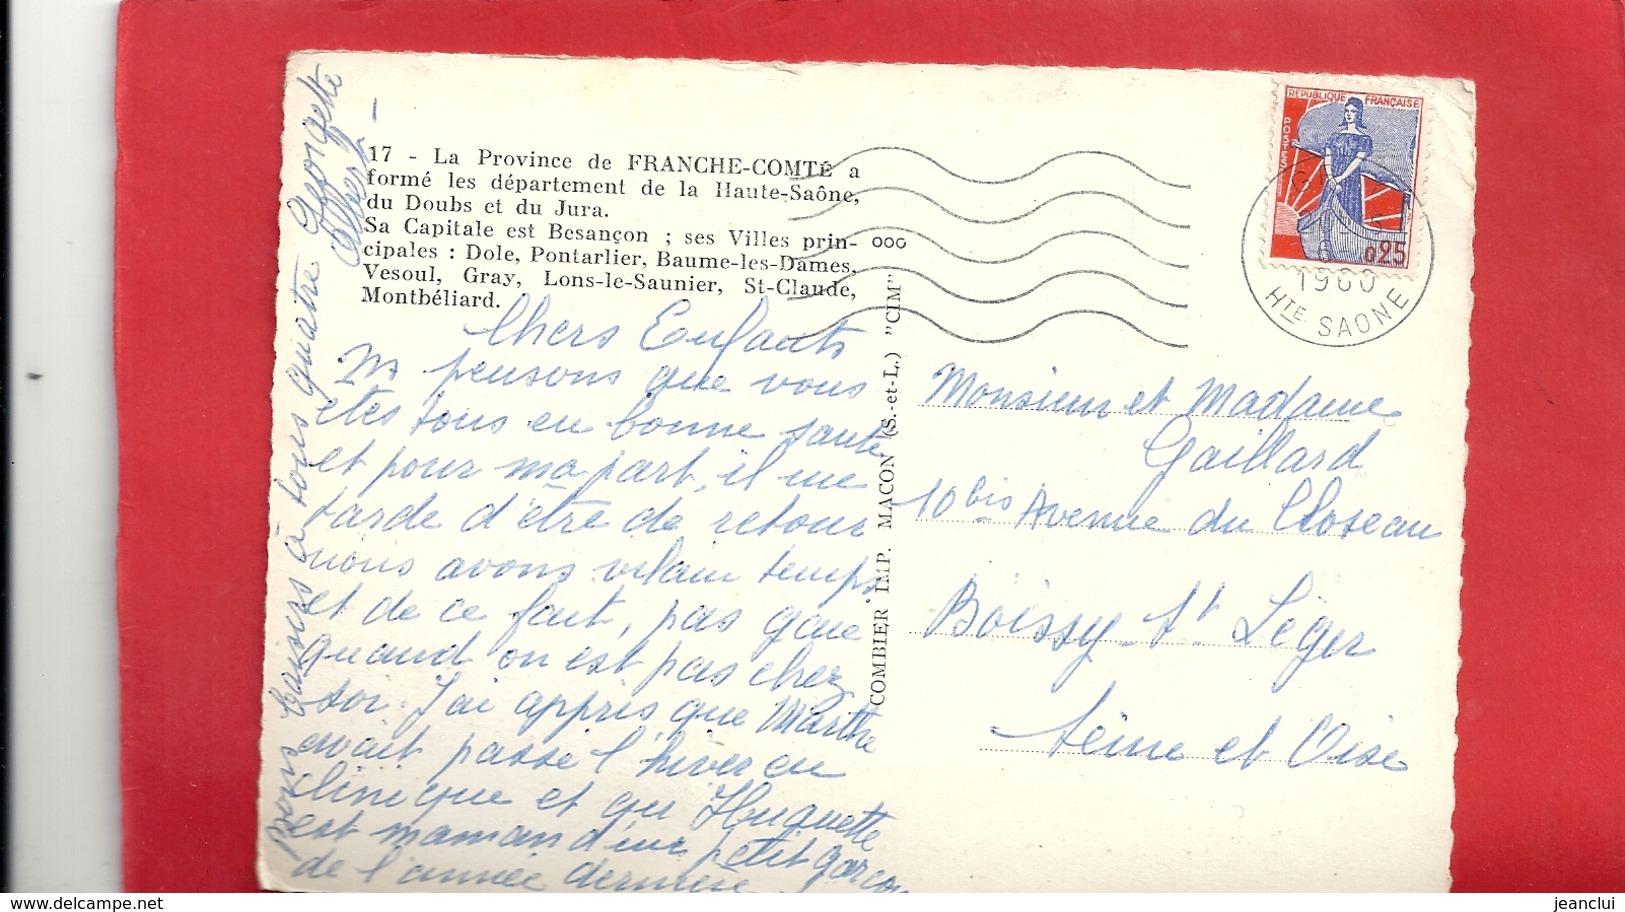 17 - La Province de FRANCHE-COMTÉ a
formé les département de la Haute-Saône,
du Doubs et du Jura.
Sa Capitale est Besançon ; ses Villes prin-
cipales : Dole, Pontarlier, Baume-les-Dames,
Vesoul, Gray, Lons-le-Saunier, St-Claude,
Montbéliard.
ooo
REPUBLIQUE FRANÇAISE
POSTES
0,25
1960
HTE SAONE
Chers Enfants
pensons que vous
êtes tous en bonne santé
et pour ma part, il me
tarde d'être de retour
nous avons vilain temps
et de ce fait, pas gaie
quand on est pas chez
soi. J'ai appris que Marthe
avait passé l'hiver en
clinique et qu Huguette
est maman d'un petit garçon
de l'année dernière
Bons baisers à tous quatre Georgette
Albert
COMBIER IMP. MACON (S.-et-L.) "CIM"
Monsieur et Madame
Gaillard
10 bis Avenue du Closeau
Boissy-St Léger
Seine et Oise
jeanclui